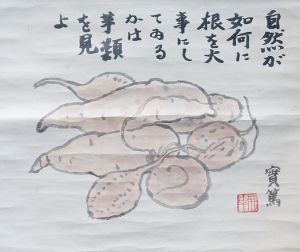 自然が
如何に
根を大
事にし
てゐる
かは
芋類
を見
よ
實篤